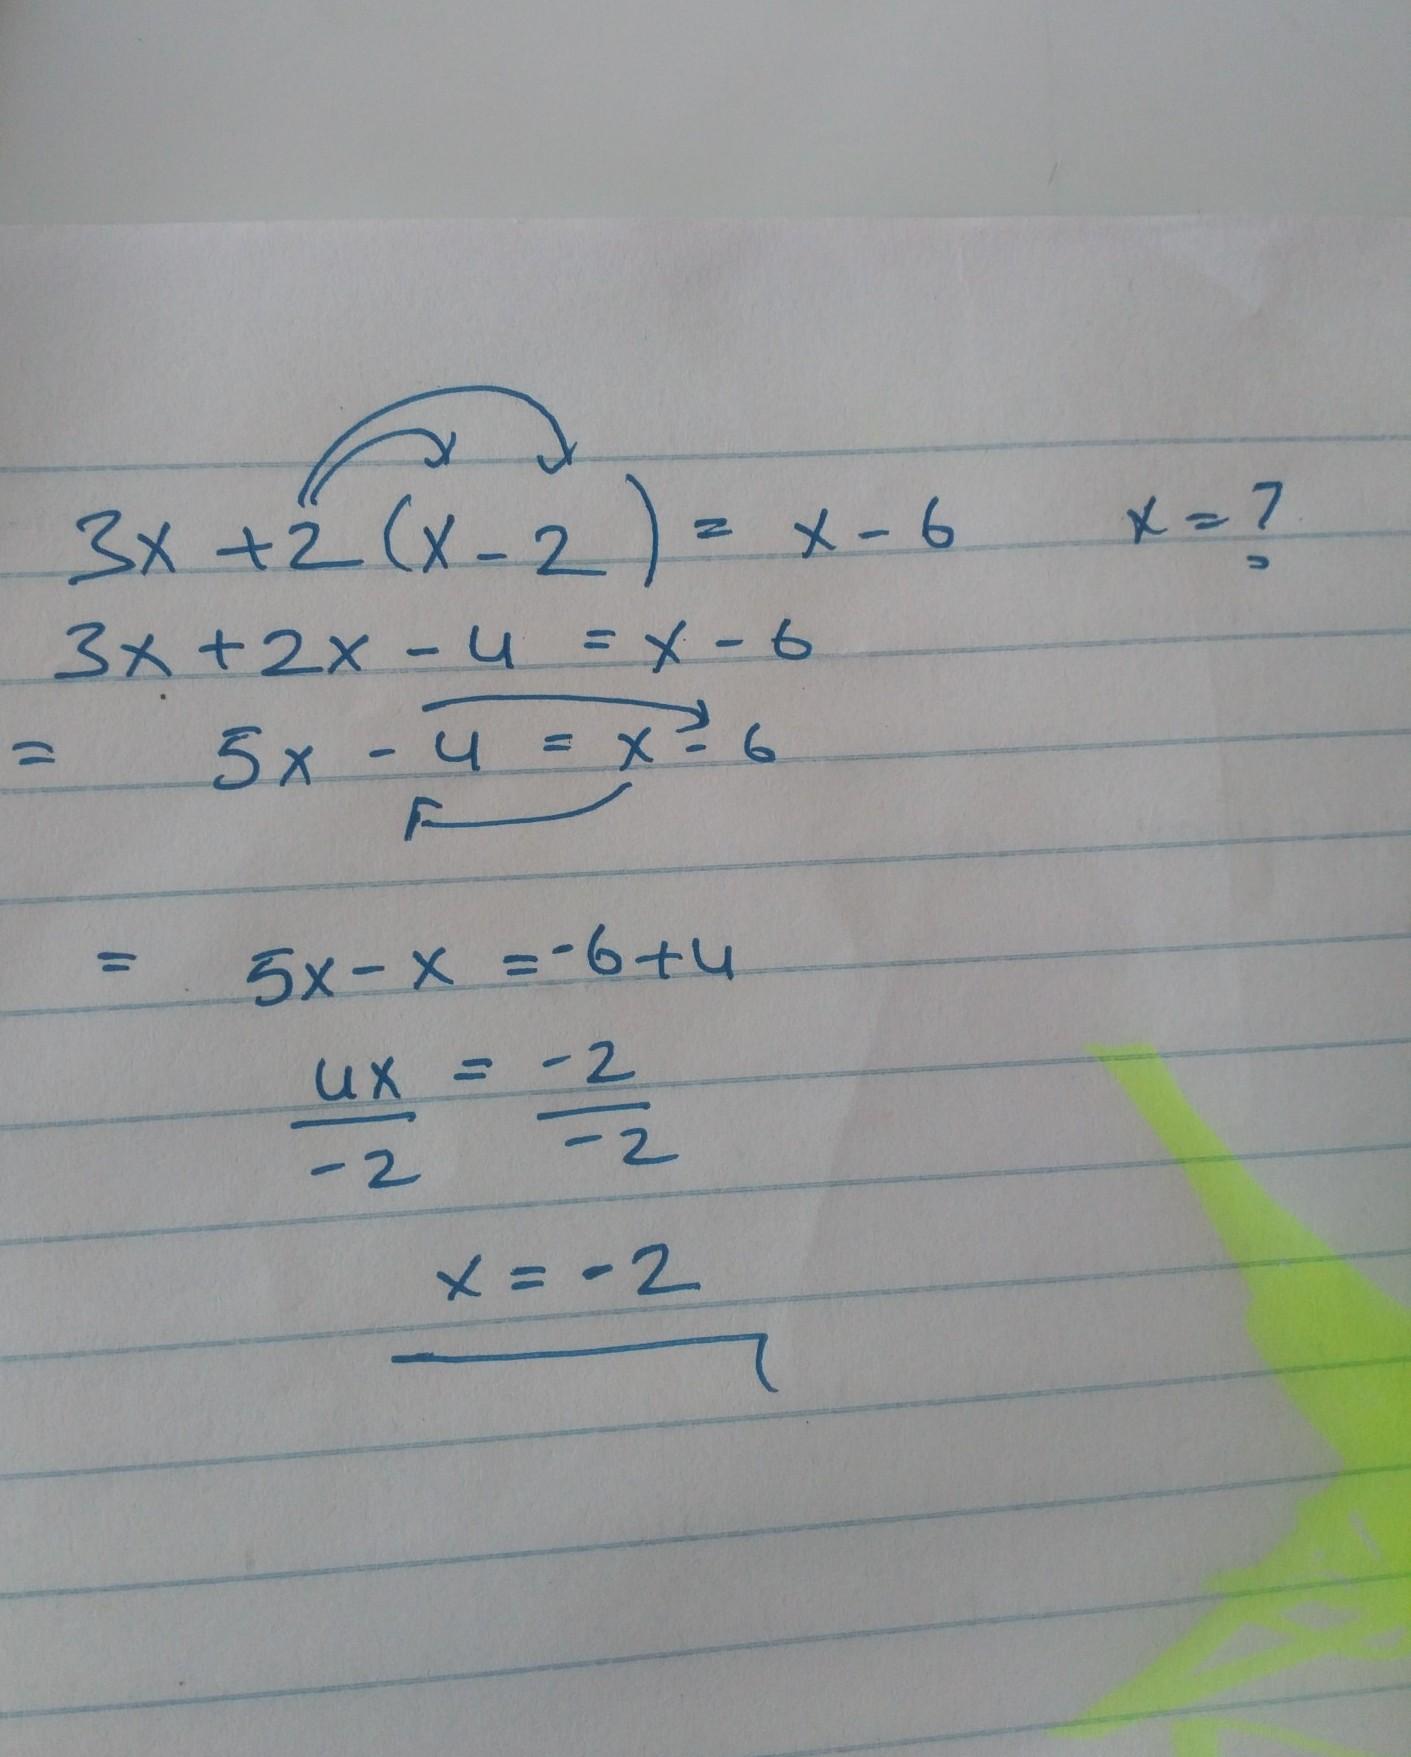 3x + 2 (x - 2) = x - 6 x = ?
3x + 2x - 4 = x - 6
= 5x - 4 = x - 6
= 5x - x = -6 + 4
4x = -2
-2 -2
x = -2